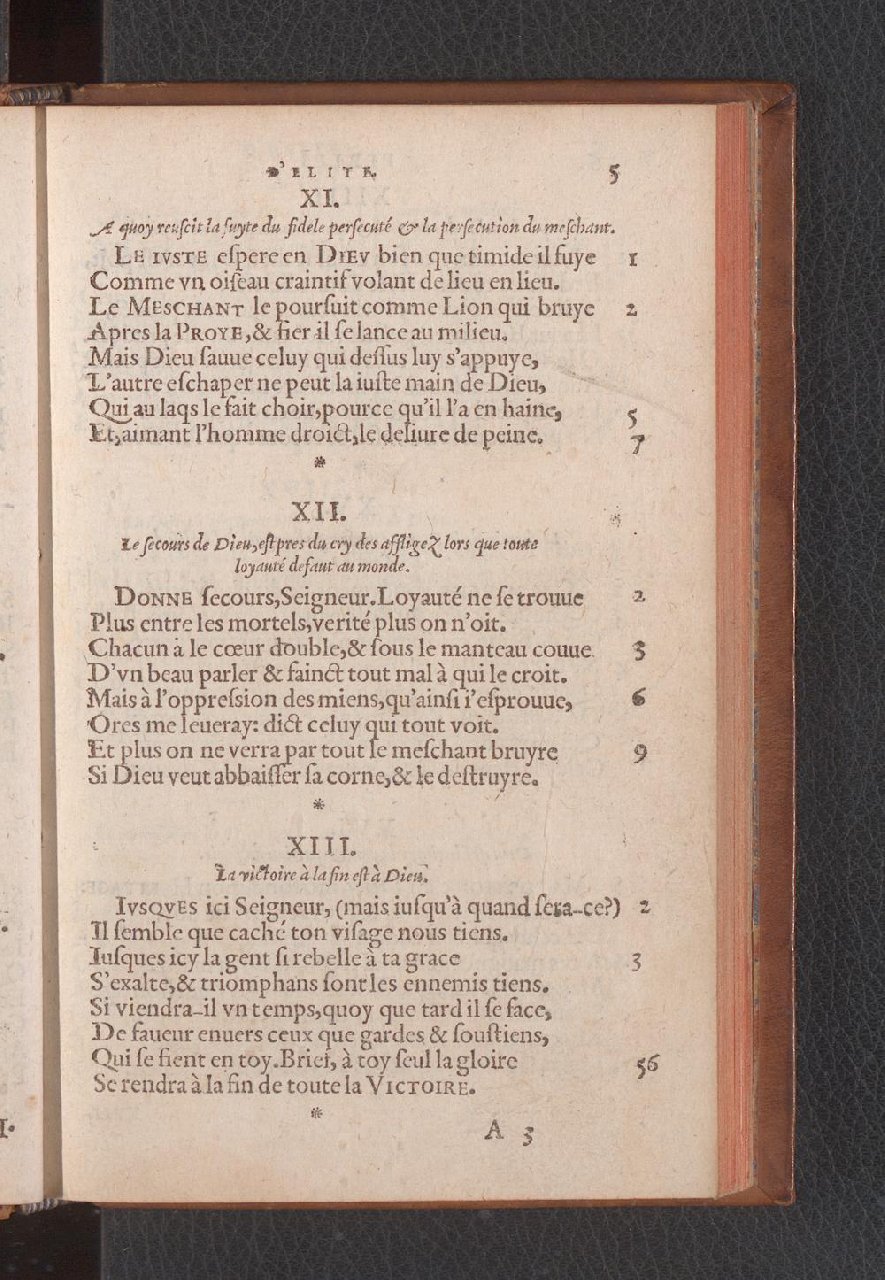 D'ELITE. 5
XI.
A quoy reuſcit la fuyte du fidele perſecuté & la perſecution du meſchant.
LE IVSTE eſpere en DIEV bien que timide il fuye 1
Comme vn oiſeau craintif volant de lieu en lieu.
Le MESCHANT le pourſuit comme Lion qui bruye 2
Apres la PROYE, & fier il ſe lance au milieu.
Mais Dieu ſauue celuy qui deſſus luy s'appuye,
L'autre eſchaper ne peut la iuſte main de Dieu,
Qui au laqs le fait choir, pource qu'il l'a en haine, 5
Et, aimant l'homme droict, le deliure de peine. 7
*
XII.
Le ſecours de Dieu, eſt pres du cry des affligez lors que toute
loyauté defaut au monde.
DONNE ſecours, Seigneur. Loyauté ne ſe trouue 2
Plus entre les mortels, verité plus on n'oit.
Chacun a le cœur double, & ſous le manteau couue 3
D'vn beau parler & fainct tout mal à qui le croit.
Mais à l'oppreſsion des miens, qu'ainſi i'eſprouue, 6
Ores me leueray: dict celuy qui tout voit.
Et plus on ne verra par tout le meſchant bruyre 9
Si Dieu veut abbaiſſer ſa corne, & le deſtruyre.
*
XIII.
La victoire à la fin eſt à Dieu.
IVSQVES ici Seigneur, (mais iuſqu'à quand ſera-ce?) 2
Il ſemble que caché ton viſage nous tiens.
Iuſques icy la gent ſi rebelle à ta grace 3
S'exalte, & triomphans ſont les ennemis tiens.
Si viendra-il vn temps, quoy que tard il ſe face,
De faueur enuers ceux que gardes & ſouſtiens,
Qui ſe fient en toy. Brief, à toy ſeul la gloire 56
Se rendra à la fin de toute la VICTOIRE.
*
A 3